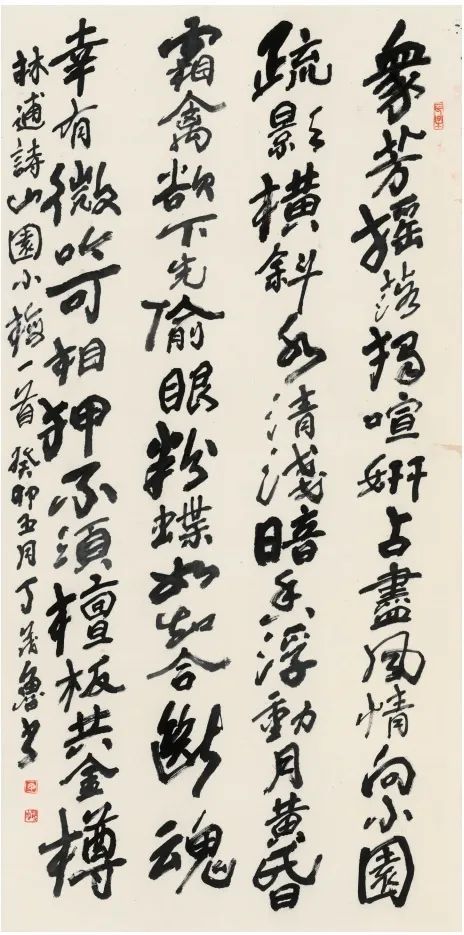 衆芳摇落獨喧妍占盡風情向小園
疏影橫斜水清淺暗香浮動月黃昏
霜禽欲下先偷眼粉蝶如知合斷魂
幸有微吟可相狎不須檀板共金樽
林逋詩山園小梅一首癸卯五月丁魯書